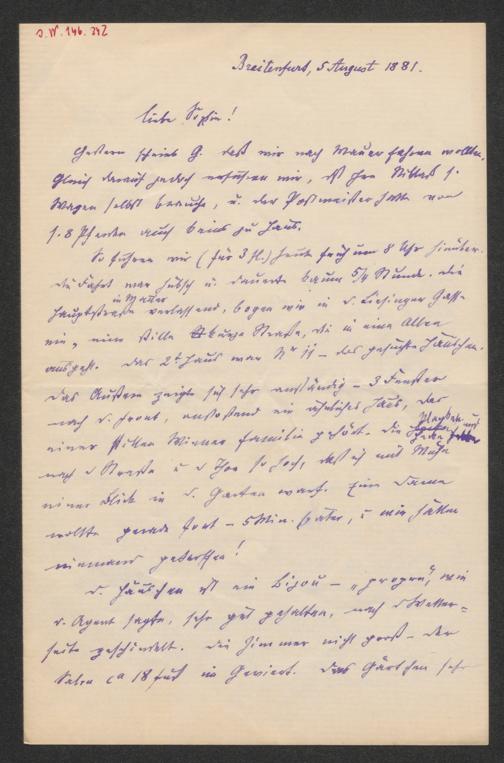 J.N. 146.242
Breitenfurt, 5 August 1881.
Liebe Sophie!
Gestern schrieb G. daß wir nach Mauer fahren wollten,
gleich darauf jedoch erfuhren wir, daß Herr s.
Wagen selbst brauche, u. der Postmeister hatte von
s. 8 Pferden auch keins zu Haus.
So fuhren wir (für 3 fl.) heute früh um 8 Uhr hinüber.
Die Fahrt war hübsch u. dauerte kaum 5/4 Stunde. Die
in Mauer
Hauptstraße verlassend, bogen wir in d. Liesinger Gasse
ein, eine stille kurze Straße, die in eine Allee
ausgeht. Das 2te Haus war Nr 11 – das gesuchte Häuschen.
Das Äußere zeigte sich sehr anständig – 3 Fenster
nach d. Front, anstoßend ein ähnliches Haus, das
einer stillen Wiener Familie gehört. Die Planken und
nach d Straße u d Thor so hoch, daß ich mit Mühe
einen Blick in d. Garten warf. Eine Dame
wollte gerade fort – 5 Min. später, u wir hätten
niemand getroffen!
D. Häuschen ist ein Bijou – „propre“, wie
d. Agent sagte, sehr gut gehalten, nach d Wetter=
seite geschindelt. Die Zimmer nicht groß – der
Salon ca 18 Fuß im Geviert. Das Gärtchen sehr